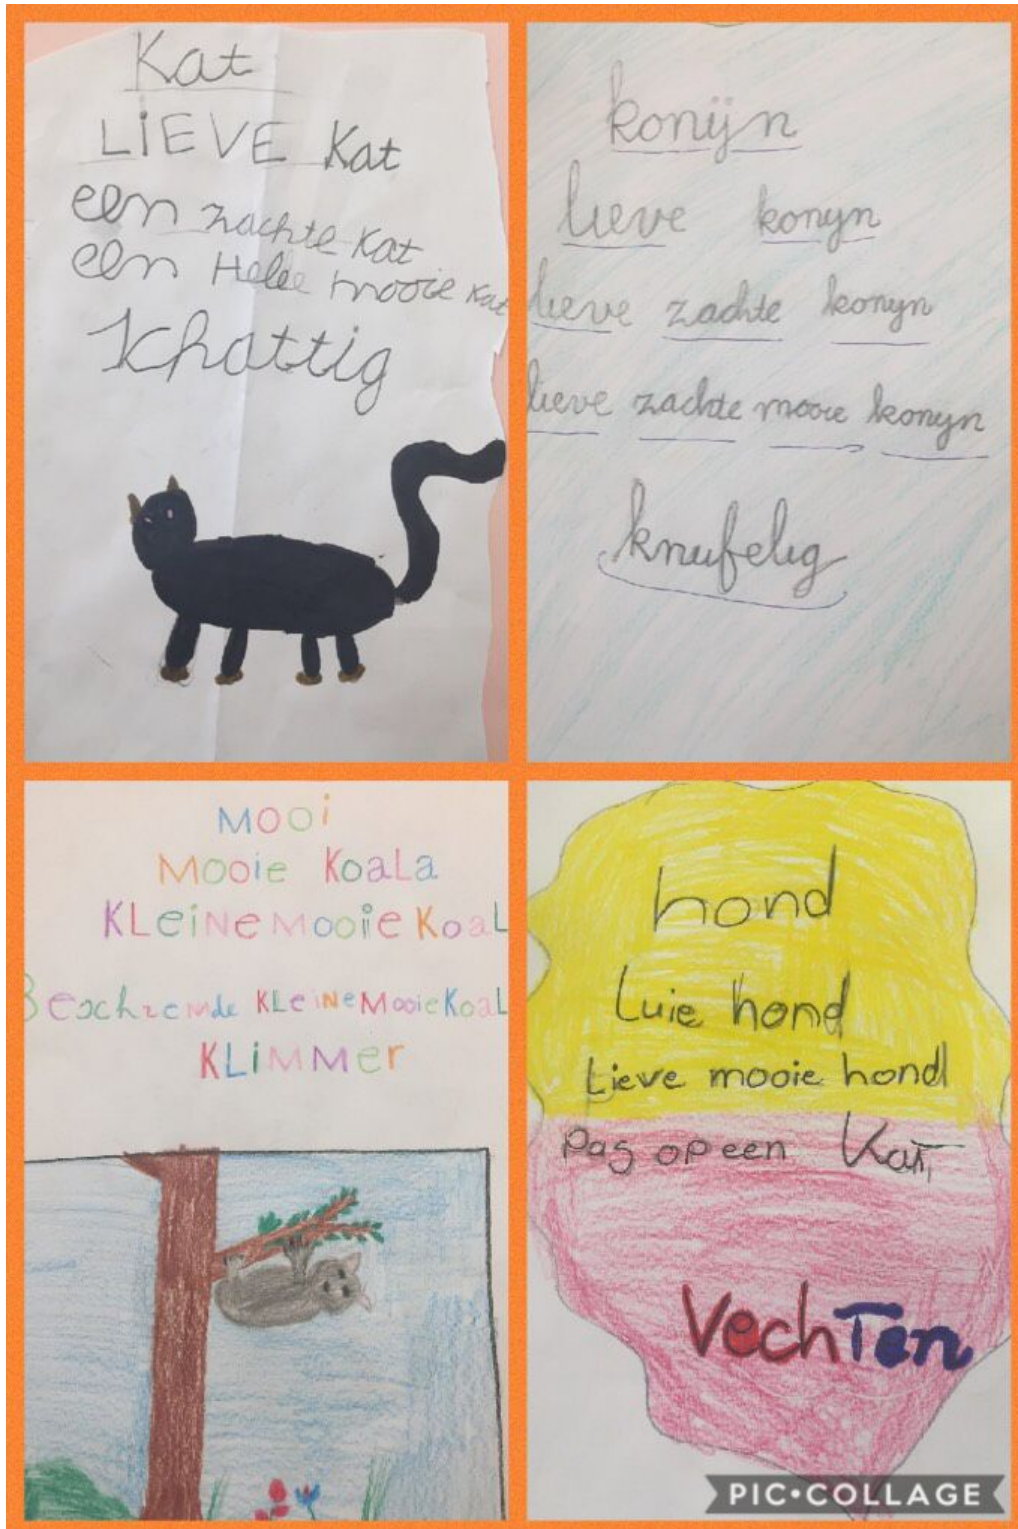 Kat
LIEVE Kat
een zachte Kat
een Hele mooie Kat
Khattig
konijn
lieve konijn
lieve zachte konijn
lieve zachte mooie konijn
knufelig
MOOi
MOOie KoaLa
KLeiNe Mooie KoaL
Beschremde KLeiNe Mooie KoaL
KLiMMer
hond
Luie hond
Lieve mooie hond
Pas op een Kat,
VechTen
PIC•COLLAGE